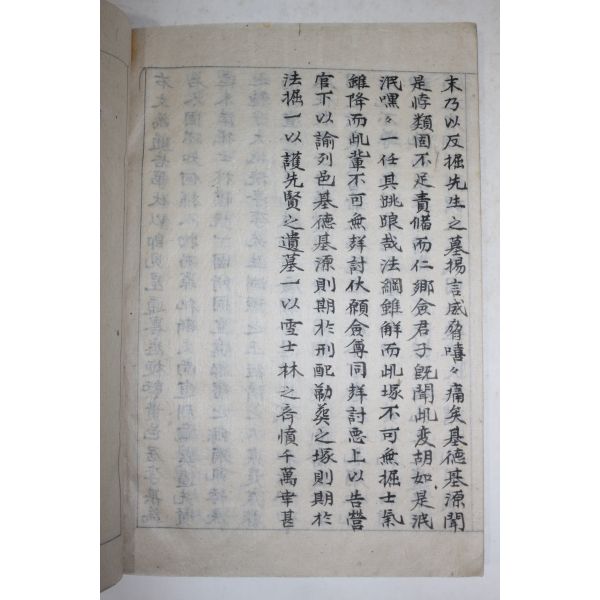 末乃以反掘先生之墓揚言威脅嘻々痛矣基德基源聞
是悖類固不足責備而仁鄕僉君子旣聞此变胡如是泯
泯嘿々一任其跳踉哉法綱雖解而此塚不可無掘士氣
雖降而此輩不可無鋅討伏願僉尊同鋅討惡上以告營
官下以諭列邑基德基源則期於刑配勒葬之塚則期於
法掘一以護先賢之遺墓一以雪士林之齊憤千萬幸甚